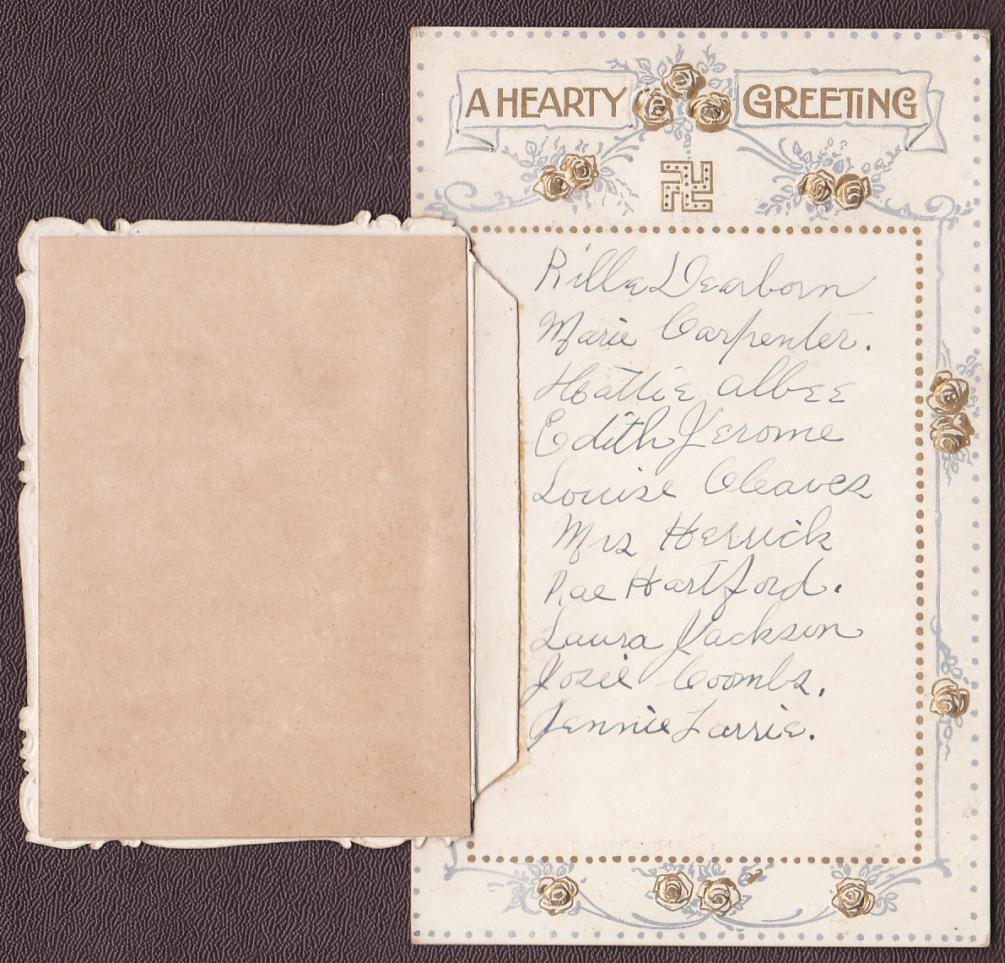 A HEARTY GREETING
Rilla Dearborn
Marie Carpenter.
Hattie Albee
Edith Jerome
Louise Cleaves
Mrs Herrick
Rae Hartford.
Laura Jackson
Josie Coombs.
Jennie Larrie.